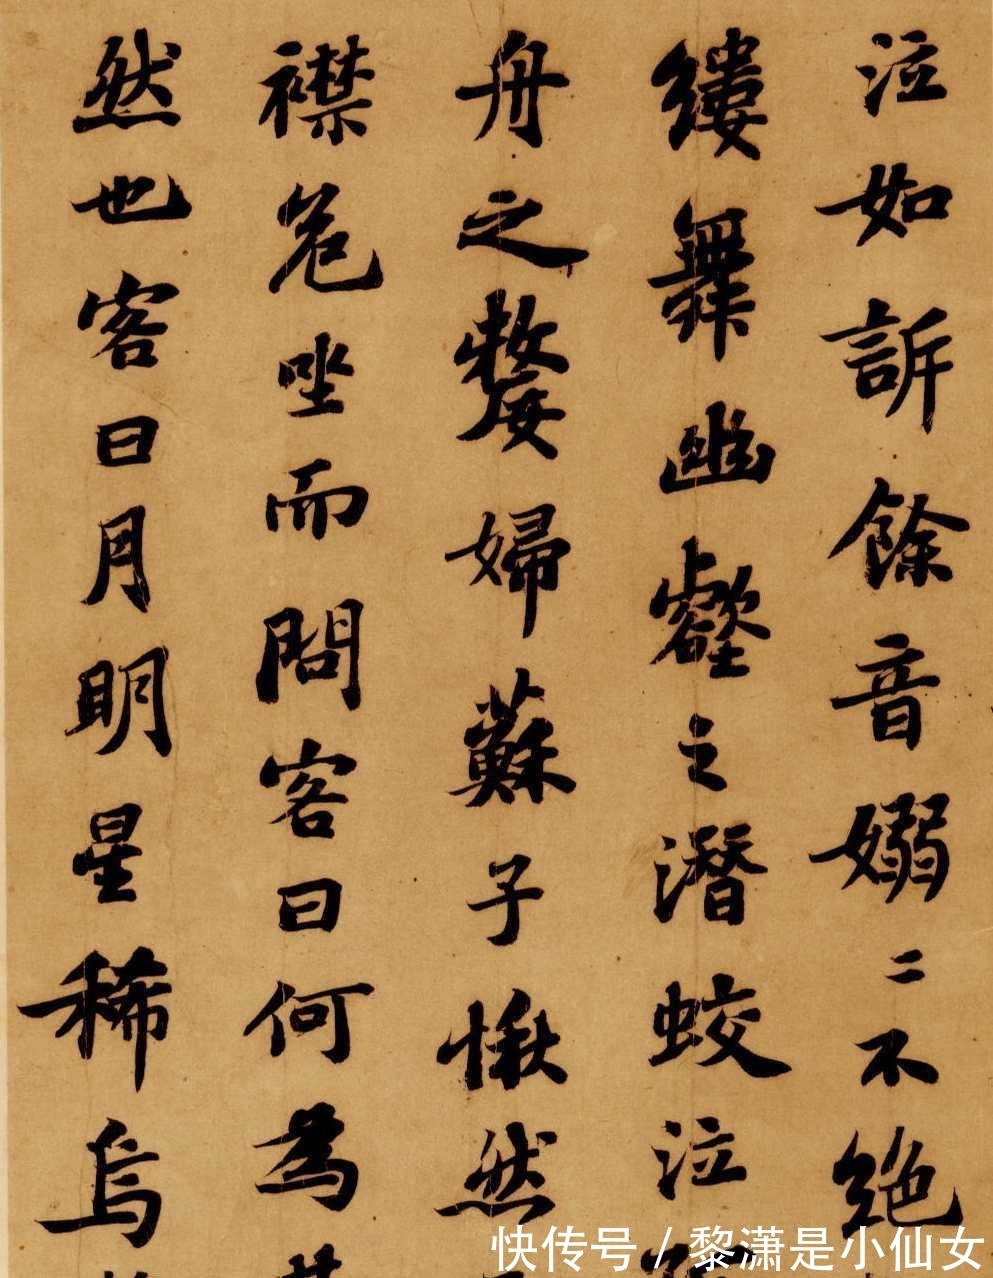 泣如訴餘音嫋〻不絶
縷舞幽壑之潛蛟泣
舟之嫠婦蘇子愀然
襟危坐而問客曰何為
然也客曰月明星稀烏
快传号/黎潇是小仙女